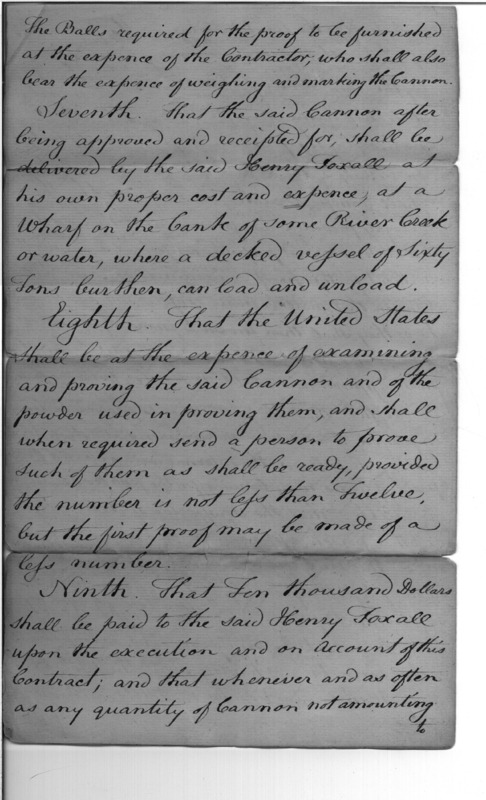 The Balls required for the proof to be furnished
at the expence of the Contractor, who shall also
bear the expence of weighing and marking the Cannon.
Seventh. That the said Cannon after
being approved and receipted for, shall be
delivered by the said Henry Foxall at
his own proper cost and expence, at a
Wharf on the bank of some River Creek
or water, where a decked vessel of Sixty
Tons burthen, can load and unload.
Eighth. That the United States
shall be at the expence of examining
and proving the said Cannon and of the
powder used in proving them, and shall
when required send a person to prove
such of them as shall be ready, provided
the number is not less than Twelve,
but the first proof may be made of a
less number.
Ninth. That Ten thousand Dollars
shall be paid to the said Henry Foxall
upon the execution and on account of this
Contract; and that whenever and as often
as any quantity of Cannon not amounting
to